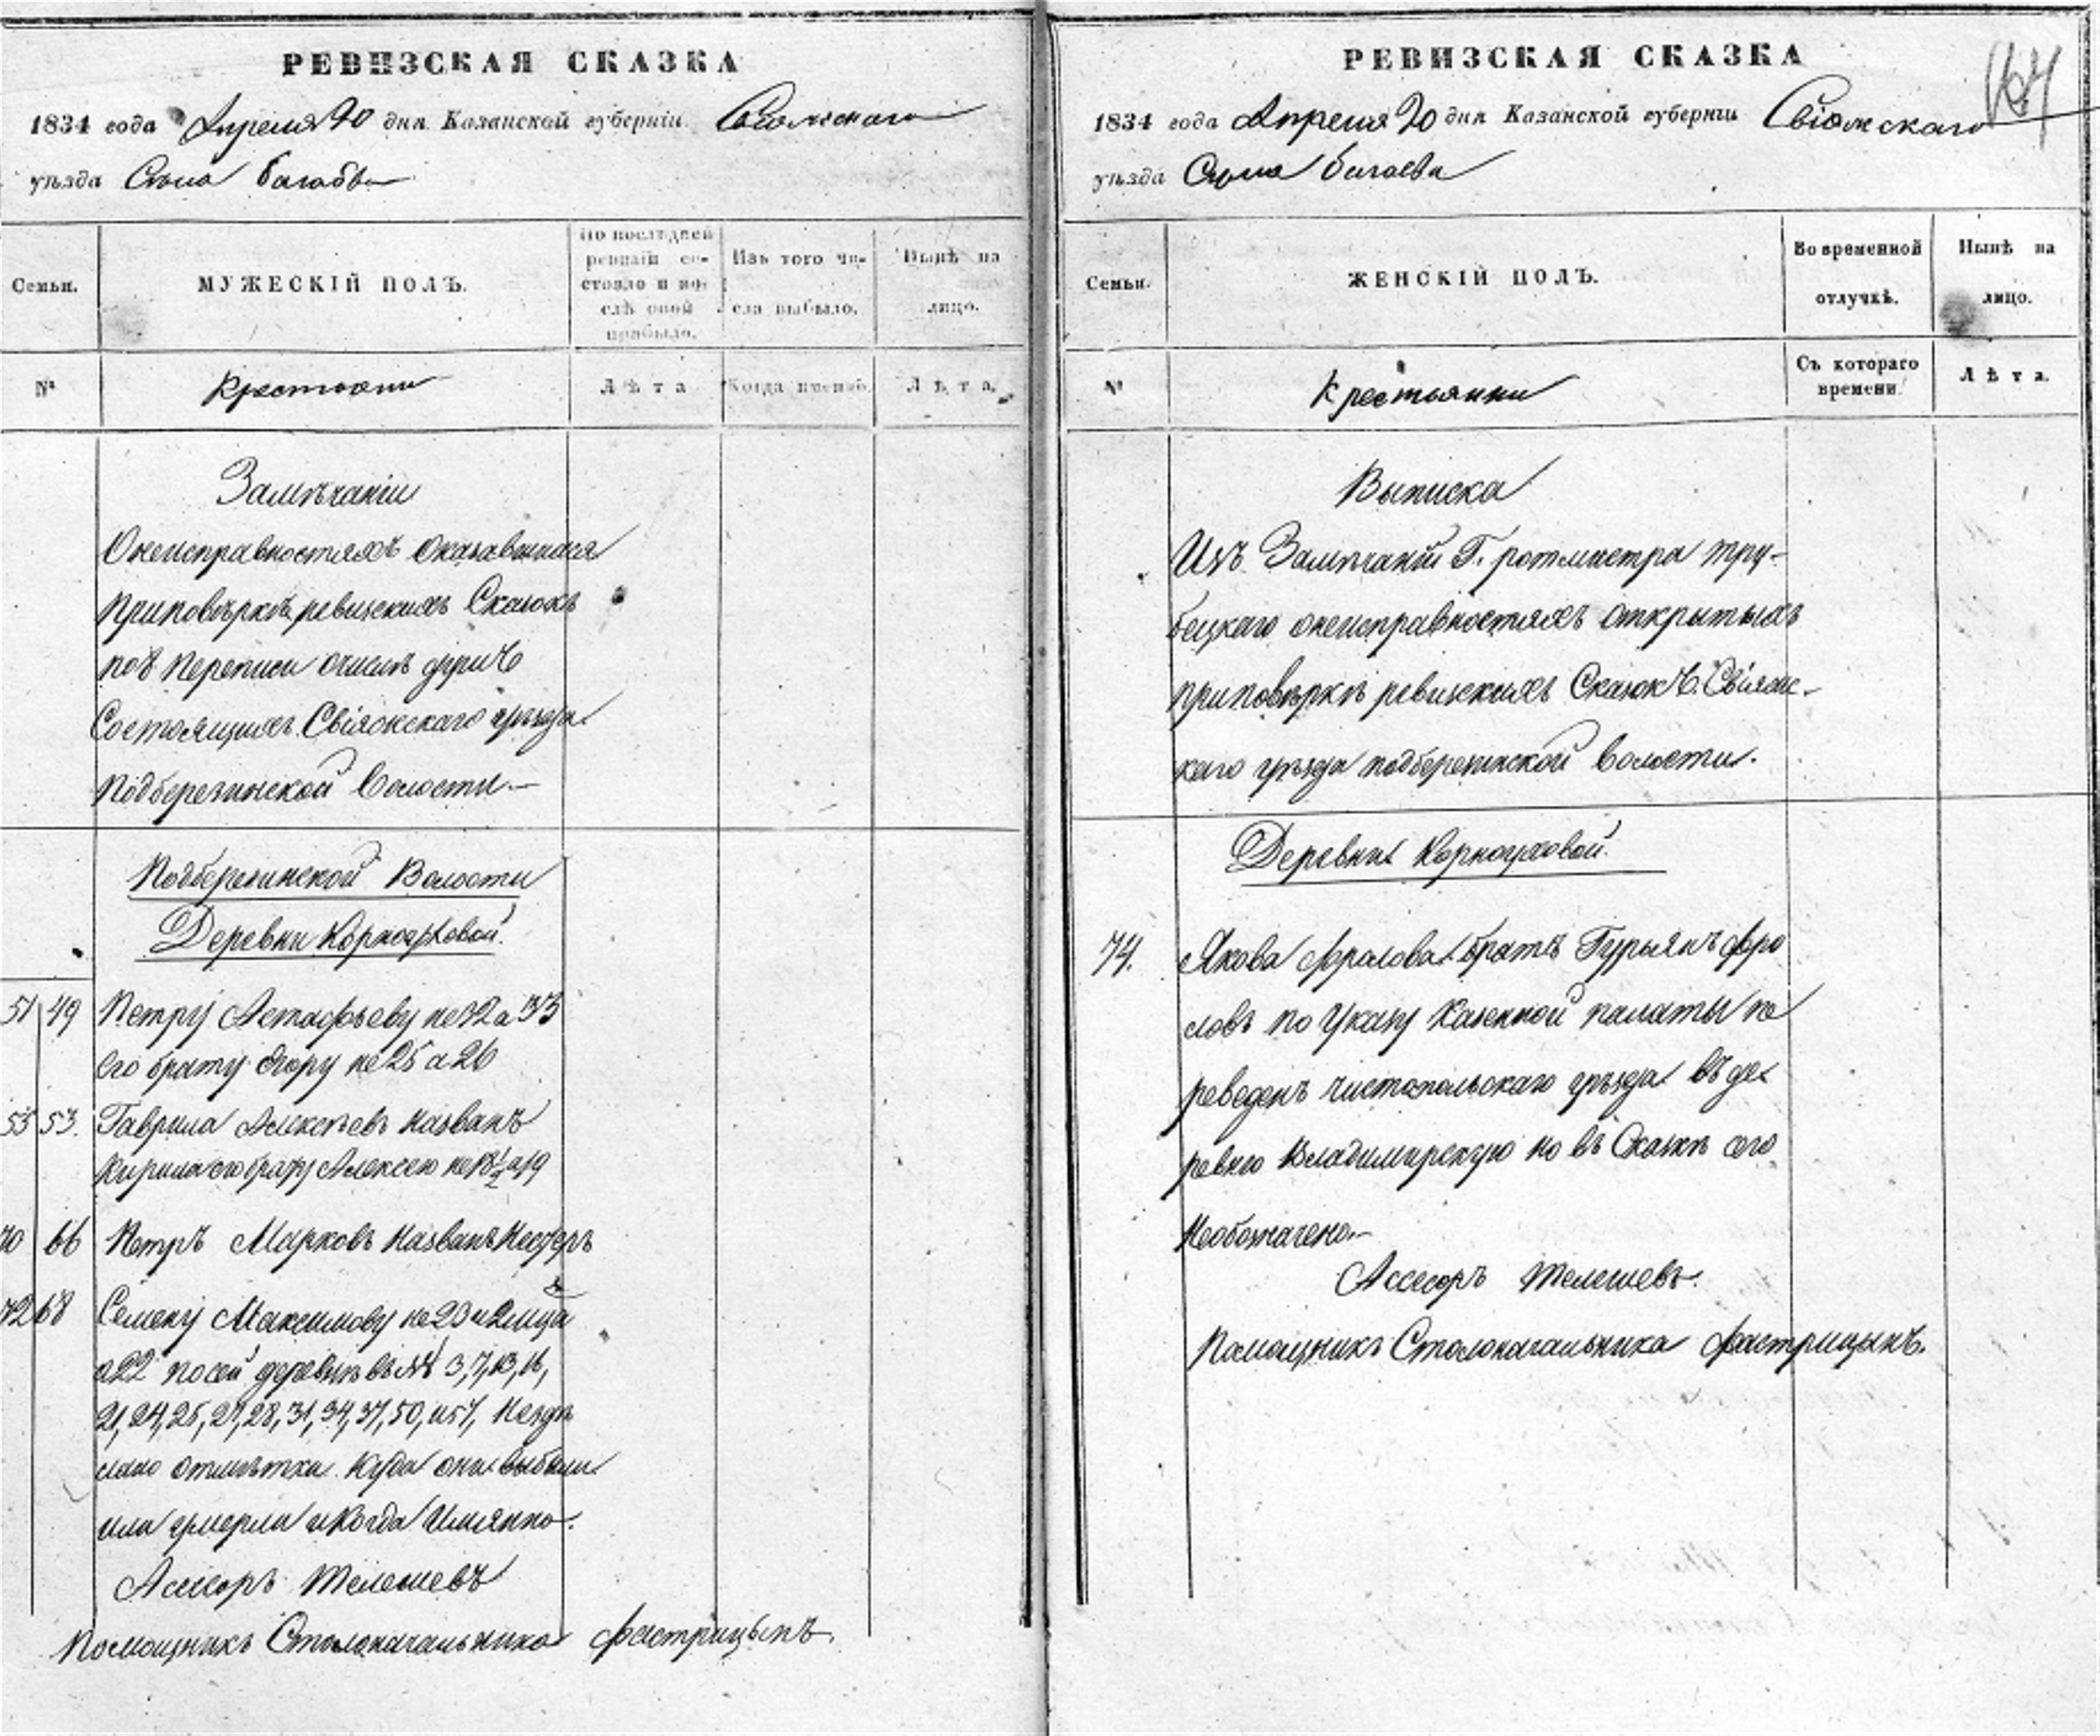 РЕВИЗСКАЯ СКАЗКА
1834 года Апреля 20 дня Казанской губернiи Свiяжскаго
уѣзда Села Бигаева
Семьи.
МУЖЕСКIЙ ПОЛЪ.
По послѣдней ревизiи состояло и послѣ оной прибыло.
Изъ того числа выбыло.
Нынѣ на лицо.
№
Крестьяни
Лѣта
Когда именно.
Лѣта.
Замѣчанiи
Онеисправностяхъ оказавшихся
приповѣркѣ ревизскихъ Сказокъ
по 8 переписи очислѣ душъ
Состоящихъ Свiяжскаго уѣзда
Подберезинской Волости.—
Подберезинской Волости
Деревни Корноуховой.
51 49 Петру Астафьеву не 32 а 33
его брату Егору не 25 а 26
55 53. Гаврила Алексѣевъ названъ
Кирила его брату Алексею не 18½ а 19
70 66 Петръ Марковъ названъ Нестеръ
72 68 Семену Максимову не 20 и 2 м-ца
а 22 посей деревнѣ въ №№ 3, 7, 13, 16,
21, 24, 25, 27, 28, 31, 34, 37, 50, и 57, Несдѣ
лано отмѣтки куда они выбыли
или умерли и когда Имянно.
Ассесоръ Телешевъ
Помощникъ Столоначальника Фастрицынъ.
РЕВИЗСКАЯ СКАЗКА
1834 года Апреля 20 дня Казанской губернiи Свiяжскаго
уѣзда Села Бигаева
Семьи.
ЖЕНСКIЙ ПОЛЪ.
Во временной отлучкѣ.
Нынѣ на лицо.
№
Крестьянки
Съ котораго времени.
Лѣта.
Выписка
Изъ Замѣчанiй Г. ротмистра Тру-
бецкаго онеисправностяхъ открытыхъ
приповѣркѣ ревизскихъ Сказокъ Свiяжс-
каго уѣзда подберезинской Волости.
Деревни Корноуховой.
74. Якова Фролова братъ Гурьянъ Фро
ловъ по Указу Казенной палаты пе
реведенъ чистопольскаго уѣзда въ де
ревню Владимирскую но въ Сказкѣ сего
Необозначено.—
Ассесоръ Телешевъ.
Помощникъ Столоначальника Фастрицынъ.